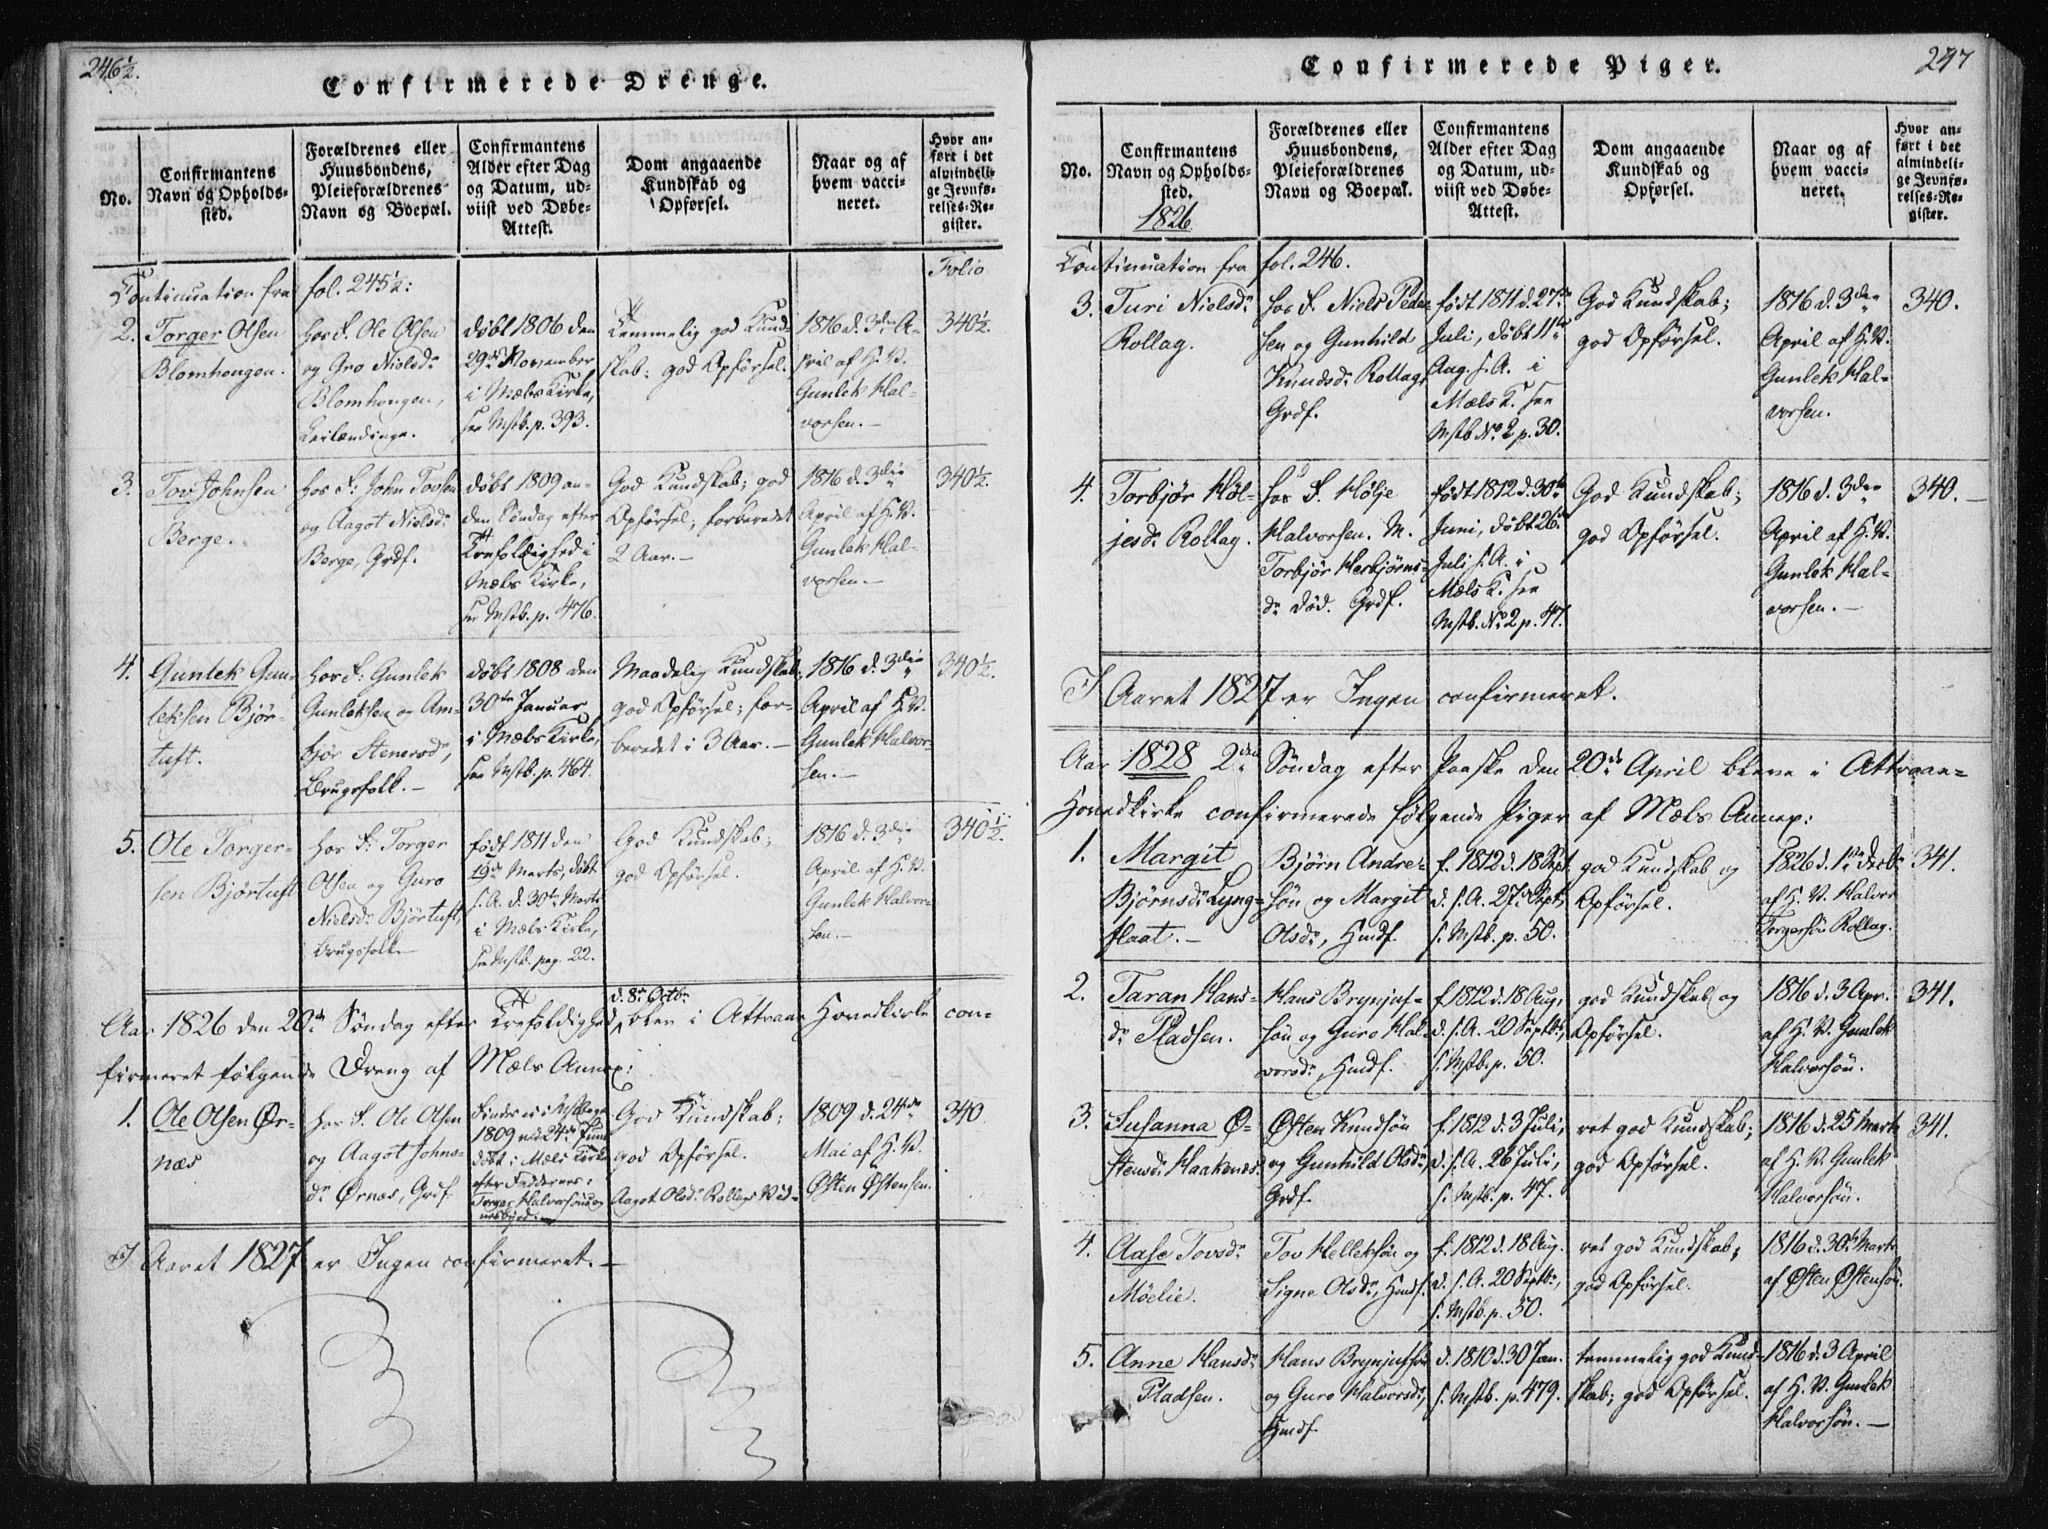 246½.
Confirmerede Drenge.
No.
Confirmantens
Navn og Opholds-
sted.
Forældrenes eller
Huusbondens,
Pleieforældrenes
Navn og Boepæl.
Confirmantens
Alder efter Dag
og Datum, ud-
viist ved Døbe-
Attest.
Dom angaaende
Kundskab og
Opførsel.
Naar og af
hvem vacci-
neret.
Hvor an-
ført i det
almindeli-
ge Jevnfø-
relses-Re-
gister.
Continuation fra fol. 245½:
Folio
2. Torger Olsen
Blomhougen.
hos F. Ole Olsen
og Gro Nielsdr
Blomhougen,
Leilændinge.
døbt 1806 den
29de November
i Mæls Kirke,
see Mstb. p. 393.
Temmelig god Kund-
skab; god Opførsel.
1816 d. 3die A-
pril af H. V.
Gunlek Hal-
vorsen.-
340½.
3. Tov Johnsen
Berge.
hos F: John Tovsen
og Aagot Nielsdr
Berge, Grdf.
døbt 1809 an-
den Søndag efter
Trefoldighed i
Mæls Kirke,
see Mstb. p. 476.
God Kundskab; god
Opførsel; forberedet
2 Aar.-
1816 d. 3die
April af H. V.
Gunlek Hal-
vorsen.-
340½.
4. Gunlek Gun-
leksen Bjør-
tuft.
hos F: Gunlek
Gunleksen og Am-
bjør Stenersdr,
Brugsfolk.-
døbt 1808 den
30te Januar
i Mæls Kirke,
see Mstb. p. 464.
Maadelig Kundskab;
god Opførsel; for-
beredet i 3 Aar.-
1816 d. 3die
April af H. V.
Gunlek Halvor-
sen.-
340½.
5. Ole Torger-
sen Bjørtuft
hos F: Torger
Olsen og Guro
Nielsdr Bjørtuft,
Brugsfolk
født 1811 den
19de Marts, døbt
s. A. d. 30te Marts
i Mæls Kirke,
see Mstb. pag. 22.
God Kundskab;
god Opførsel.
1816 d. 3die
April af H. V.
Gunlek Halvor-
sen.-
340½.
d. 8de Octbr
Aar 1826 den 20de Søndag efter Trefoldighed, blev i Attraae Hovedkirke con-
firmeret følgende Dreng af Mæls Annex:
1. Ole Olsen Ør-
næs
hos F. Ole Olsen
og Aagot Johns-
dr Ørnæs, Grdf.
1809 ved 24de Juni
døbt i Mæls Kirke
efter Faddernes:
God Kundskab;
god Opførsel.
Aagot Olsdr Rollags Vid-
nesbyrd.
1809 d. 24de
Mai af H. V.
Østen Østensen.
340
I Aaret 1827 er Ingen confirmeret.-
247
Confirmerede Piger.
No.
Confirmantens
Navn og Opholds-
sted.
1826
Forældrenes eller
Huusbondens,
Pleieforældrenes
Navn og Boepæl.
Confirmantens
Alder efter Dag
og Datum, ud-
viist ved Døbe-
Attest.
Dom angaaende
Kundskab og
Opførsel.
Naar og af
hvem vacci-
neret.
Hvor an-
ført i det
almindeli-
ge Jevnfø-
relses-Re-
gister.
Continuation fra fol. 246.
3. Turi Nielsdr
Rollag.
hos F. Niels Peder-
sen og Gunhild
Knudsdr Rollag,
Grdf.
født 1811 d. 27de
Juli, døbt 11te
Aug. s. A. i
Mæls K. see
Mstb No 2 p. 30.
God Kundskab;
god Opførsel.
1816 d. 3die
April af H. V.
Gunlek Hal-
vorsen.
340.
4. Torbjør Høl-
jesdr Rollag.
hos F. Hølje
Halvorsen. M.
Torbjør Herbjørns-
dr død. Grdf.
født 1812 d. 30te
Juni, døbt 26de
Juli s. A. i
Mæls K. see
Mstb. No 2 p. 47.
God Kundskab;
god Opførsel.
1816 d. 3die
April af H. V.
Gunlek Hal-
vorsen.-
340.-
I Aaret 1827 er Ingen confirmeret.
Aar 1828 2den Søndag efter Paaske den 20de April bleve i Attraae-
Hovedkirke confirmerede følgende Piger af Mæls Annex:
1. Margit
Bjørnsdr Lyng-
flaat.-
Bjørn Andre-
søn og Margit
Olsdr, Hmdf.
f. 1812 d. 18 Sept
d. s. A. 27 Sept,
s. Mstb. p. 50.
god Kundskab og
Opførsel.
1826 d. 1ste Decbr
af H. V. Halvor
Torgersøn Rollag.
341.
2. Taran Hans-
dr Pladsen.
Hans Brynjuf-
søn og Guro Hal-
vorsdr, Hmdf.
f. 1812 d. 18 Aug,
d. s. A. 20 Septbr,
s. Mstb. p. 50.
god Kundskab og
Opførsel.
1816 d. 3 Apr.
af H. V. Gunlek
Halvorsøn.
341.
3. Susanna Ø-
stensdr Haakenæs.
Østen Knudsøn
og Gunhild Olsdr,
Grdf.
f. 1812 d. 3 Juli,
d. s. A. 26 Juli,
s. Mstb. p. 47.
ret god Kundskab;
god Opførsel.
1816 d. 25 Marts
af H. V. Gunlek
Halvorsøn.
341.
4. Aase Tovsdr
Møelie.
Tov Helleksøn og
Signe Olsdr, Hmdf.
f. 1812 d. 18 Aug.
d. s. A. 20 Septbr,
s. Mstb. p. 50.
ret god Kundskab;
god Opførsel.
1816 d. 30te Marts
af Østen Østensøn.
5. Anne Hansdr
Pladsen.
Hans Brynjufsøn
og Guro Halvorsdr,
Hmdf.
d. 1810 d. 30 Jan.
s. Mstb. p. 479.
temmelig god Kund-
skab; god Opførsel.
1816 d. 3 April
af H. V. Gunlek
Halvorsøn.-